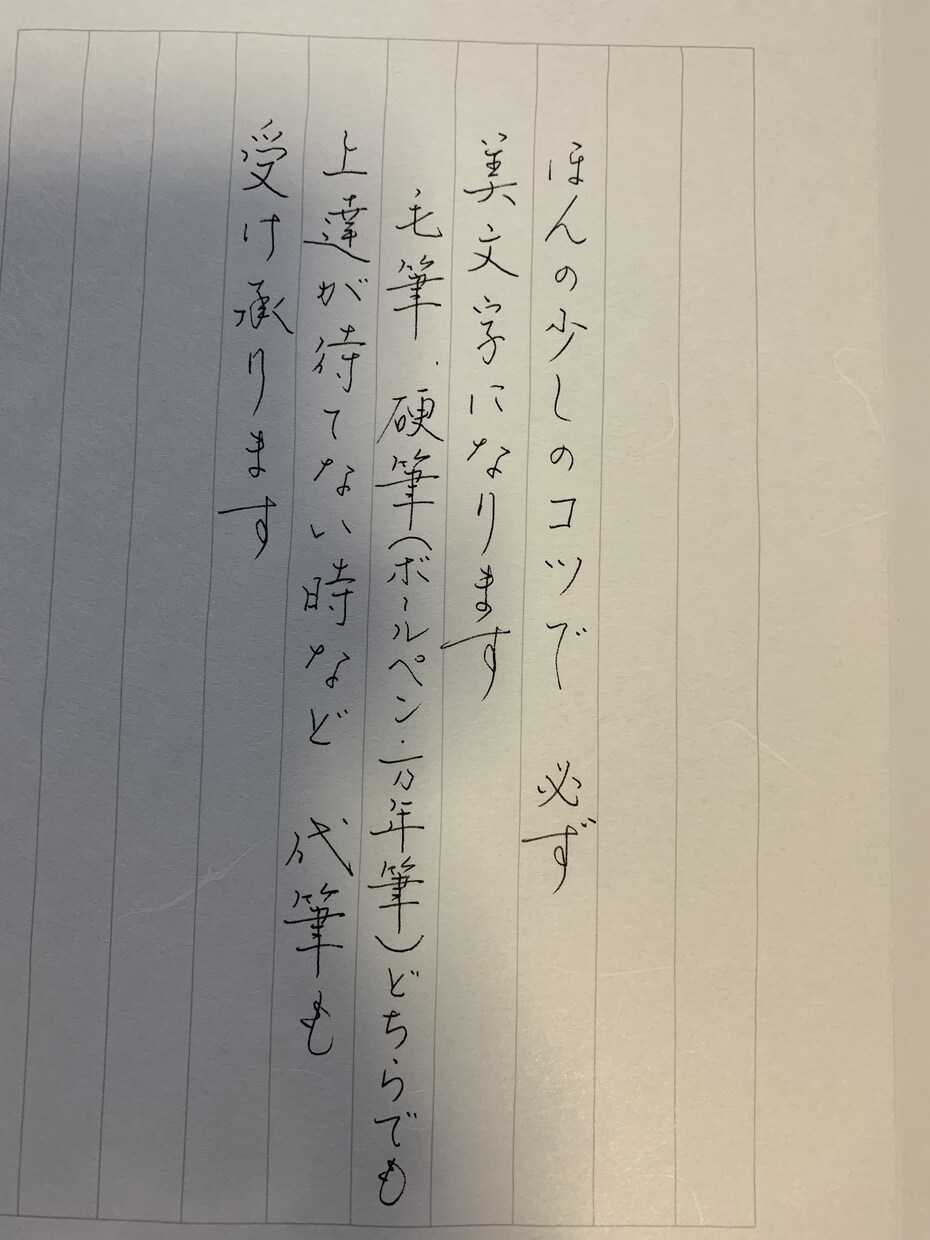 ほんの少しのコツで　必ず
美文字になります
毛筆・硬筆(ボールペン・万年筆)どちらでも
上達が待てない時など　代筆も
受け承ります